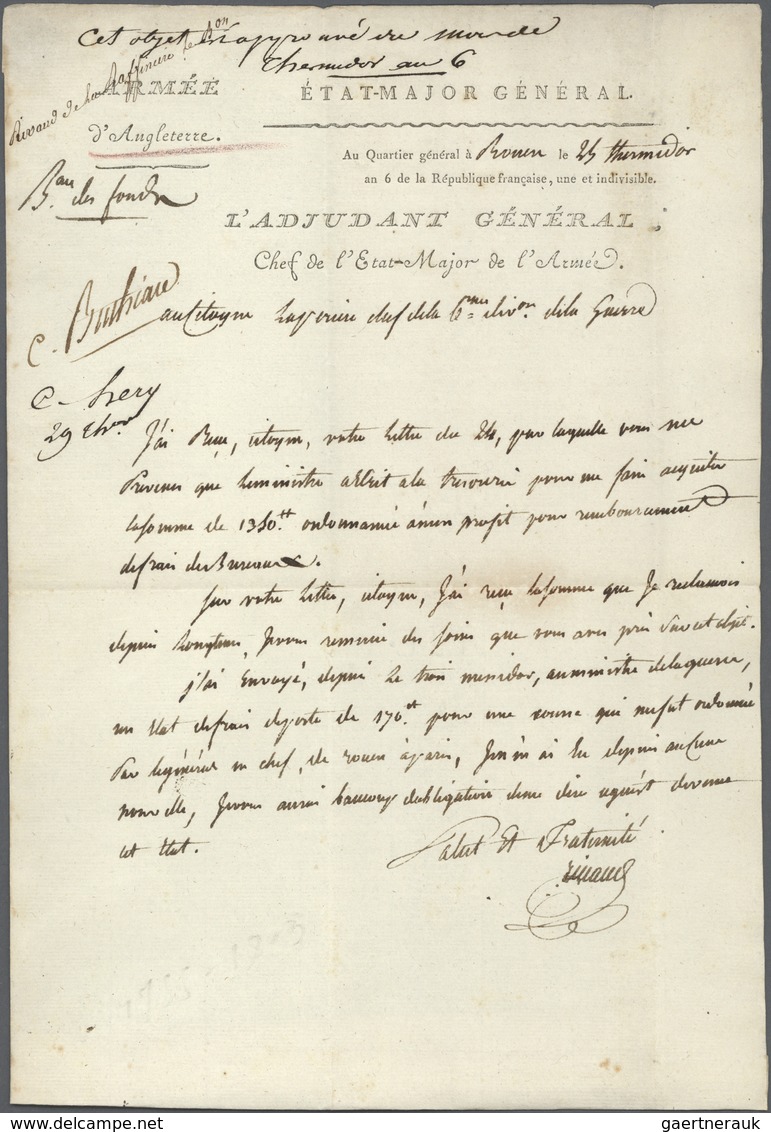 Cet objet approuvé
thermidor an 6
Rivaud de la Raffinière le Bon
ARMÉE
ÉTAT-MAJOR GÉNÉRAL.
d'Angleterre.
Au Quartier général à Rouen le 25 thermidor
an 6 de la République française, une et indivisible.
Bau des fonds
L'ADJUDANT GÉNÉRAL,
Chef de l'Etat-Major de l'Armée.
C.
au Citoyen chef de la 6me divon de la Guerre
C.
29 ther
J'ai Reçu, citoyen, votre lettre du 24, par laquelle vous me
Prevenez que le ministre a Ecrit a la tresorerie pour me faire acquitter
la somme de 1350tt ordonnancée à mon profit pour remboursement
de frais de Bureaux.
Sur votre lettre, citoyen, J'ai reçu la somme que Je reclamois
depuis Longtems, Je vous remercie des soins que vous avez pris sur cet objet.
j'ai Envoyé, depuis Le trois messidor, au ministre de la guerre,
un Etat de frais de poste de 170tt pour une course qui me fut ordonnée
Par le général en chef, de rouen à paris, Je n'ai Eu depuis aucune
nouvelle, Je vous aurai beaucoup d'obligation de me dire ce qu'est devenu
cet Etat.
Salut Et Fraternité
Rivaud
gaertnerauk @ delcampe.net